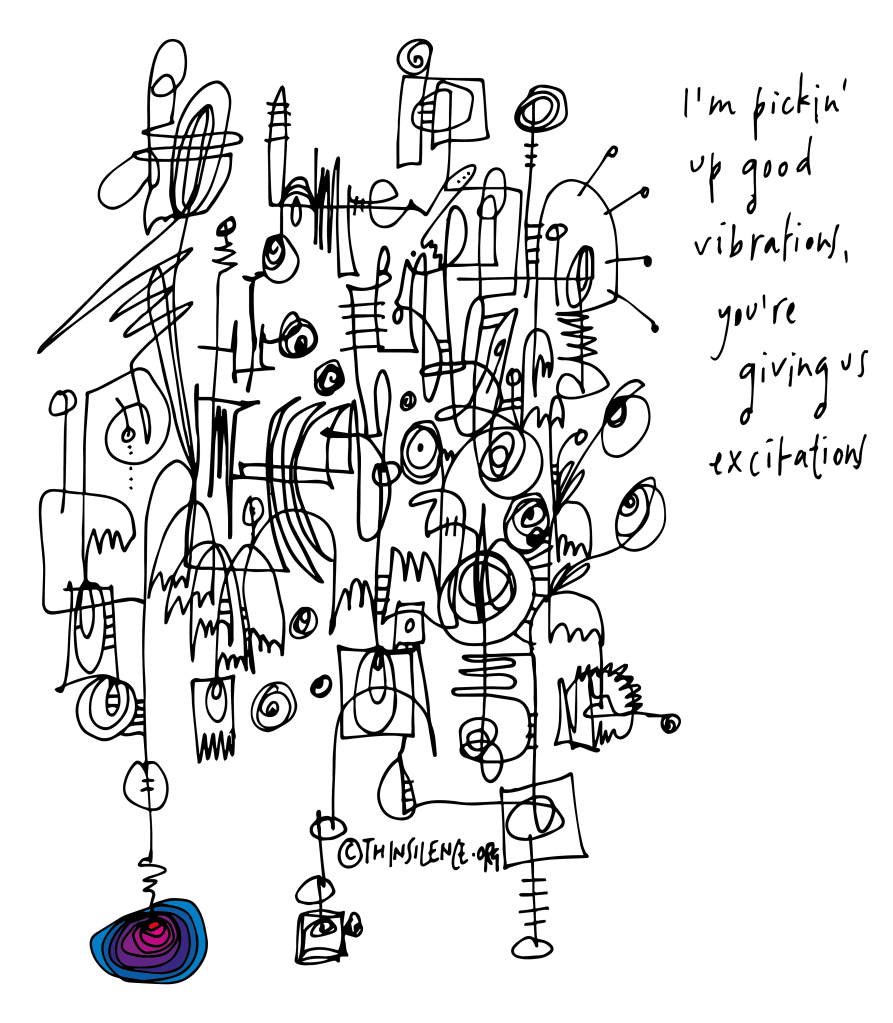 I'm pickin'
up good
vibrations,
you're
giving us
excitations
©THINSILENCE.ORG